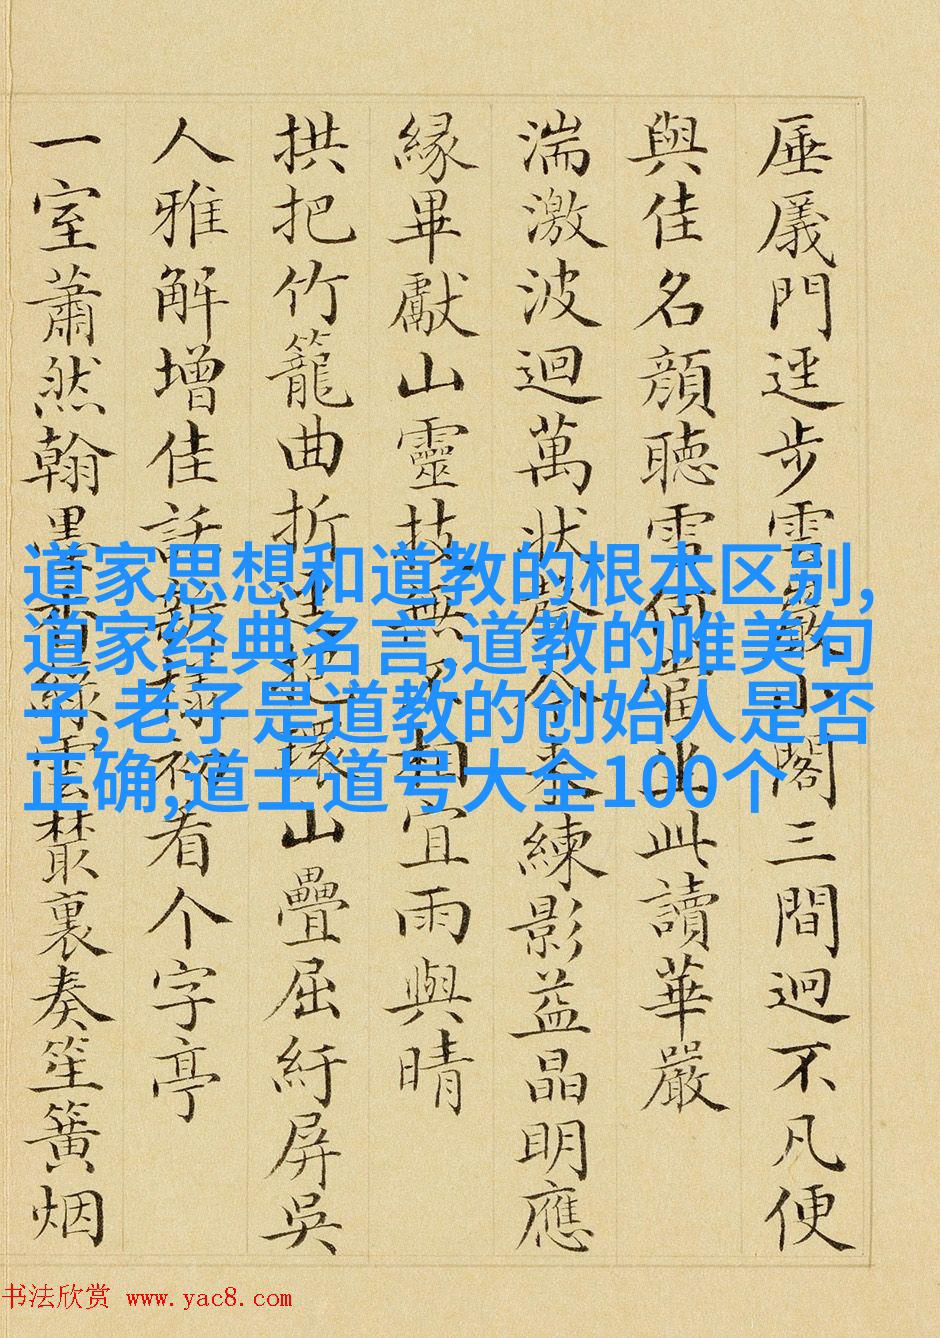 厜㕒門逕步雲巖小閣三間迥不凡便
與佳名顔聽雪何當坐此讀華嚴
湍激波迴萬狀聲今來練影益晶明應
緣畢獻山靈技無不相宜雨與晴
拱把竹籠曲折環山疊屈紆屏吳
人雅解增佳話新様看个字亭
一室蕭然翰墨香綠雲叢裏奏笙簧烟
道家思想和道教的根本区别,
道家经典名言,道教的唯美句
子,老子是道教的创始人是否
正确,道士道号大全100个
书法欣赏 www.yac8.com